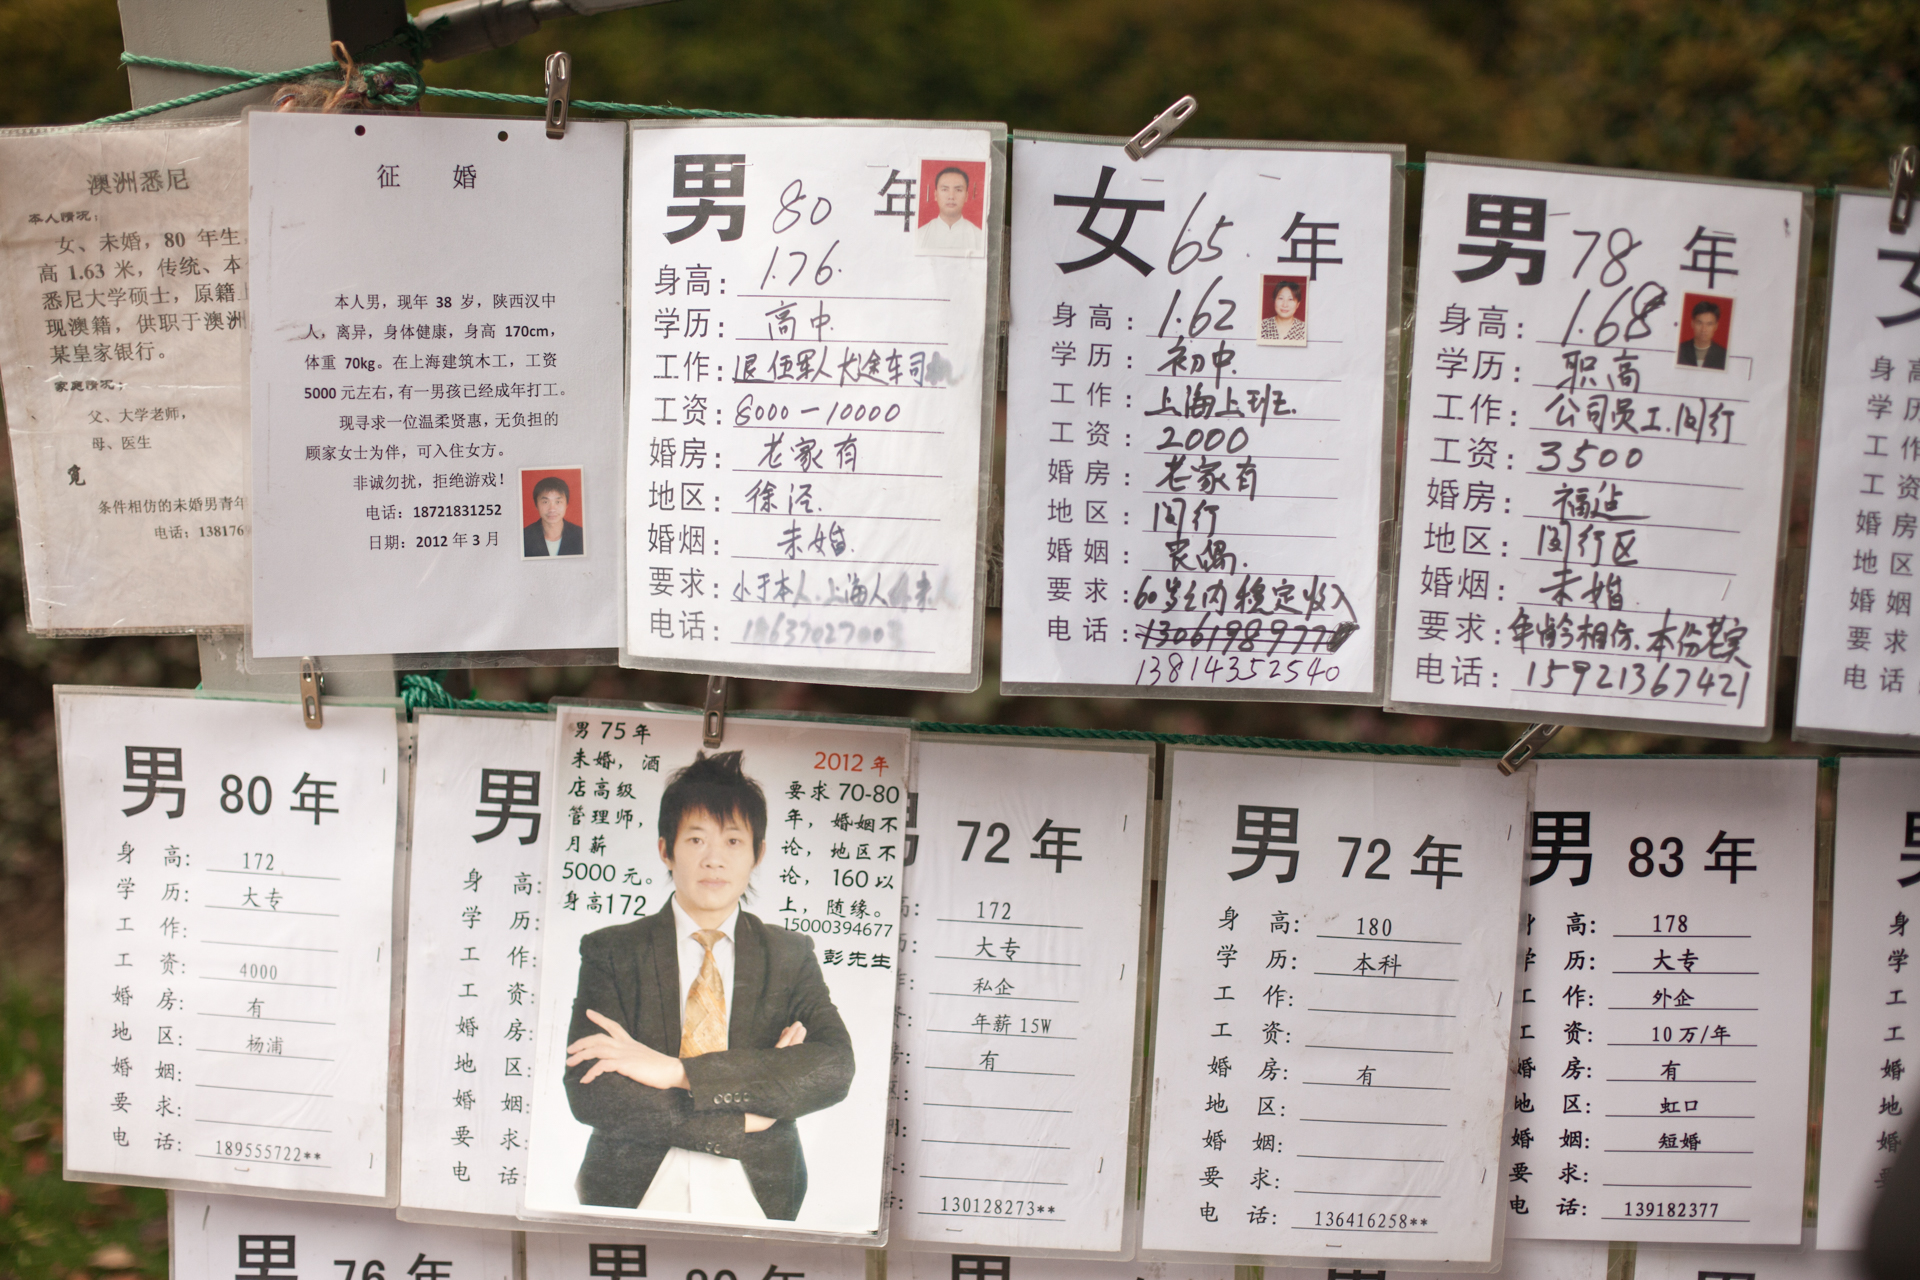 澳洲悉尼
本人情况：
女、未婚，80 年生
高 1.63 米，传统、本
悉尼大学硕士，原籍
现澳籍，供职于澳洲
某皇家银行。
家庭情况：
父、大学老师，
母、医生
觅
条件相仿的未婚男青年
电话：138176
征 婚
本人男，现年 38 岁，陕西汉中
人，离异，身体健康，身高 170cm，
体重 70kg。在上海建筑木工，工资
5000 元左右，有一男孩已经成年打工。
现寻求一位温柔贤惠，无负担的
顾家女士为伴，可入住女方。
非诚勿扰，拒绝游戏！
电话：18721831252
日期：2012 年 3 月
男 80 年
身高：1.76.
学历：高中
工作：退伍军人大途车司机
工资：8000－10000
婚房：老家有
地区：徐泾.
婚烟：未婚.
要求：小于本人.上海人
电话：
女 65. 年
身高：1.62
学历：初中.
工作：上海上班.
工资：2000
婚房：老家有
地区：闵行
婚姻：丧偶.
要求：60岁之内 稳定收入
电话：13061989770
13814352540
男 78 年
身高：1.68.
学历：职高
工作：公司员工.闵行
工资：3500
婚房：福建
地区：闵行区
婚烟：未婚
要求：年龄相仿.本份老实
电话：15921367421
女
身高
学历
工作
工资
婚房
地区
婚姻
要求
电话
男 80 年
身 高： 172
学 历： 大专
工 作：
工 资： 4000
婚 房： 有
地 区： 杨浦
婚 姻：
要 求：
电 话： 189555722**
男
身 高：
学 历：
工 作：
工 资：
婚 房：
地 区：
婚 姻：
要 求：
电 话：
男 75 年
未婚，酒
店高级
管理师，
月薪
5000 元。
身高172
2012 年
要求 70-80
年，婚姻不
论，地区不
论，160 以
上，随缘。
15000394677
彭先生
72 年
172
大专
私企
年薪 15W
有
130128273**
男 72 年
身 高： 180
学 历： 本科
工 作：
工 资：
婚 房： 有
地 区：
婚 姻：
要 求：
电 话： 136416258**
男 83 年
身 高： 178
学 历： 大专
工 作： 外企
工 资： 10 万/年
婚 房： 有
地 区： 虹口
婚 姻： 短婚
要 求：
电 话： 139182377
身
学
工
工
婚
地
婚
要
男 76 年
男 80 年
男